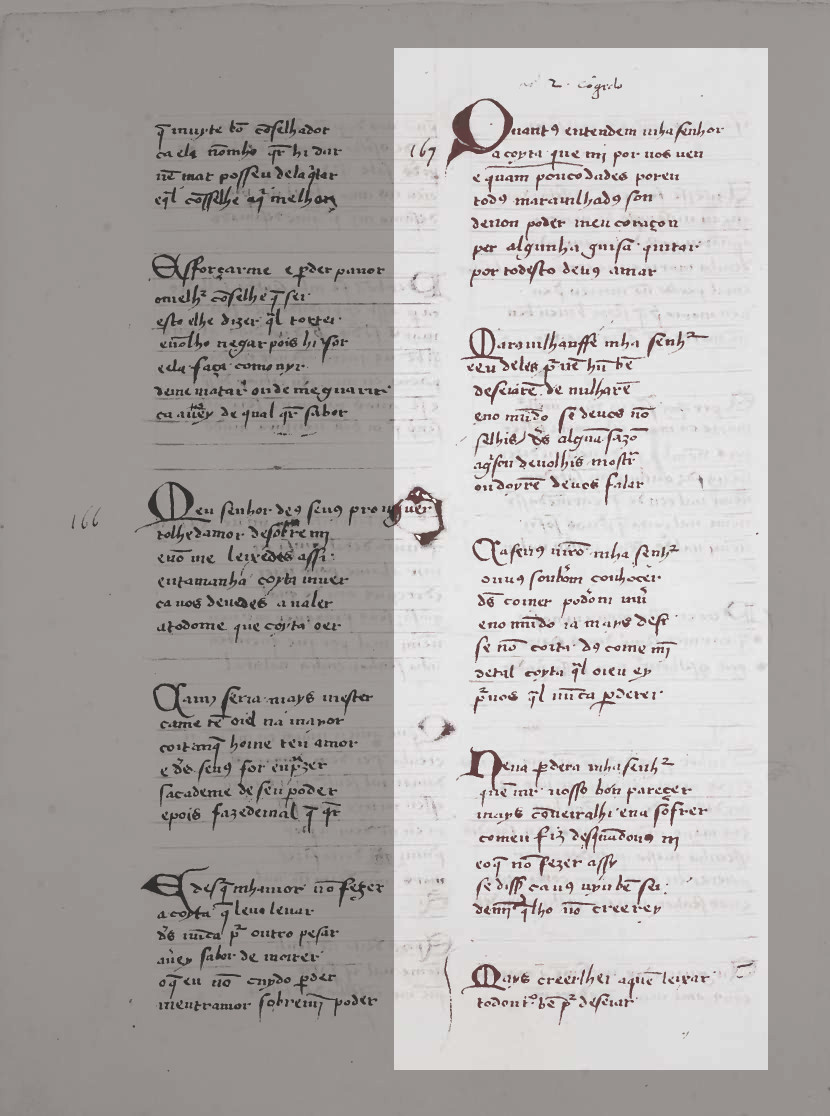 q̄ muyte bō cōselhador
ca ela nōmho q̄r hi dar
nē mar posseu dela q̄tar
Esforçarme e ꝑder pauor
omelhʳ cōselhe q̄ sei
esto elhe dizer q̄l tortei
enōlho negar pois hi for
e ela faça como uyr
deme matar ou de me guarir
ca au'ey de qual q̄r sabor
166
Meu senhor deꝯ seuꝯ prouguer
tolhedamor desobre mi
enō me leixedes assi
entamanha coyta uiuer
ca uos deuedes a ualer
atodome que coyta oer
Ca mj seria mays mester
came tē oiel na mayor
coitanq̄ home teu amor
e d's seuꝯ for enp'zer
sacademe de seu poder
epois fazedemal q̄ q̄r
E desq̄ mhamor nō fezer
a coyta q̄ leuo leuar
d's nūca p' outro pesar
au'ey sabor de morrer
o q̄ eu nō cuydo ꝑder
mentramor sobremī poder
2 cōgrdo
167
Quantꝯ entendem mha senhor
a coyta que mi por uos uen
e quam poucodades poren
todꝯ marauilhadꝯ son
denon poder meu coraçon
per algunha guisa quitar
por todesto deuꝯ amar
Marauilhansse mha senhʳ
e eu deles p' nē hūu bē
deseiarē de nulharē
eno mūdo se deuos nō
selhis d's algūa sazō
ag'sou deuolhis mostr'
ou doyrē deuos falar
Ca seuꝯ uirō mha senhʳ
ouuꝯ soubōm conhocer
d's comer podōm
eno mūdo ia mays des
se nō coita dꝯ come mī
detal coyta q̄l oieu ey
p' uos q̄l nūca ꝑderei
Nena ꝑdera mha senhʳ
quē uir uosso bon pareçer
mays cōueiralhi ena sofrer
comeu fiz desquādouꝯ ui
eo q̄ nō fezer assy
se diss ca uꝯ uyu bē sei
demi q̄lho nō creerey
Mays creerlhei aquē leixar
todout' bē p' deseiar